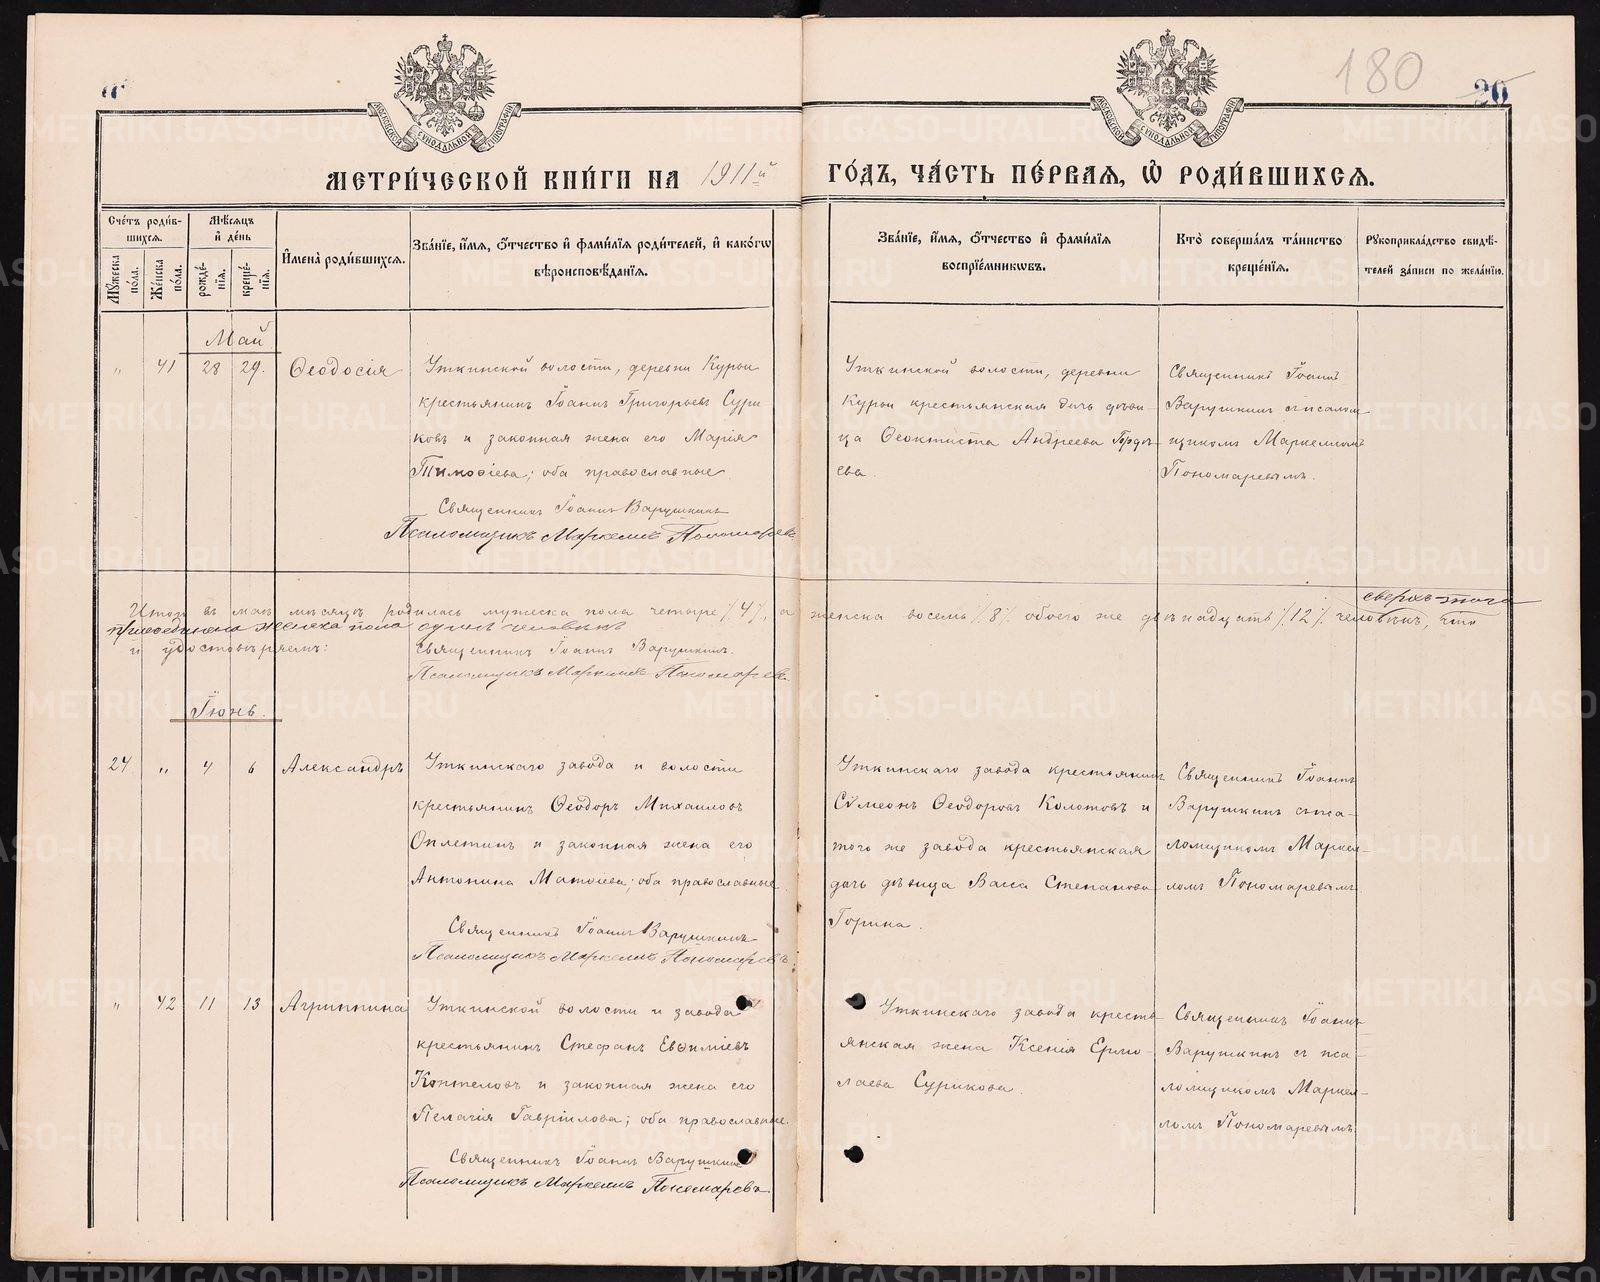 180
20
МЕТРИ́ЧЕСКОЙ КНИ́ГИ НА 1911й ГО́ДЪ, ЧА́СТЬ ПЕ́РВАѦ, Ѡ҆ РОДИ́ВШИХСѦ.
Сче́тъ роди́вшихсѧ.
Мꙋ́жеска по́ла.
Же́нска по́ла.
Мѣ́сѧцъ и҆ де́нь
рожде́нїѧ.
креще́нїѧ.
И҆мена̀ роди́вшихсѧ.
Зва́нїе, и҆́мѧ, ѻ҆́тчество и҆ фами́лїѧ роди́телей, и҆ како́гѡ
вѣроисповѣ́данїѧ.
Зва́нїе, и҆́мѧ, ѻ҆́тчество и҆ фами́лїѧ
воспрїе́мникѡвъ.
Кто̀ соверша́лъ та́инство
креще́нїѧ.
Рꙋкоприкла́дство свидѣ́-
телей за́писи по жела́нїю.
Май
„ 41 28 29. Ѳеодосія
Уткинской волости, деревни Курьи
крестьянинъ Іоаннъ Григорьевъ Сури-
ковъ и законная жена его Марія
Тимоѳіева; оба православные
Священникъ Іоаннъ Варушкинъ
Псаломщикъ Маркеллъ Пономаревъ
Уткинской волости, деревни
Курьи крестьянская дочь дѣви-
ца Ѳеоктиста Андреева Гордѣ-
ева.
Священникъ Іоаннъ
Варушкинъ съ псалом-
щикомъ Маркелломъ
Пономаревымъ.
Итого въ маѣ мѣсяцѣ родилось мужеска пола четыре /4/, а женска восемь /8/ обоего же двѣнадцать /12/ человѣкъ, что
сверхъ-того
присоединено женска пола одинъ человѣкъ
и удостовѣряемъ:
Священникъ Іоаннъ Варушкинъ.
Псаломщикъ Маркеллъ Пономаревъ.
Іюнь.
24 „ 4 6 Александръ
Уткинскаго завода и волости
крестьянинъ Ѳеодоръ Михаиловъ
Оплетинъ и законная жена его
Антонина Матѳіева; оба православные
Священникъ Іоаннъ Варушкинъ
Псаломщикъ Маркеллъ Пономаревъ.
Уткинскаго завода крестьянинъ
Сѵмеонъ Ѳеодоровъ Колотовъ и
того же завода крестьянская
дочь дѣвица Васса Степанова
Горина.
Священникъ Іоаннъ
Варушкинъ съ пса-
ломщикомъ Маркел-
ломъ Пономаревымъ
„ 42 11 13 Агриппина
Уткинской волости и завода
крестьянинъ Стефанъ Евѳиміевъ
Коптеловъ и законная жена его
Пелагія Гавріилова; оба православные.
Священникъ Іоаннъ Варушкинъ
Псаломщикъ Маркеллъ Пономаревъ.
Уткинскаго завода кресть-
янская жена Ксенія Ермо-
лаева Сурикова.
Священникъ Іоаннъ
Варушкинъ съ пса-
ломщикомъ Маркел-
ломъ Пономаревымъ.
METRIKI.GASO-URAL.RU